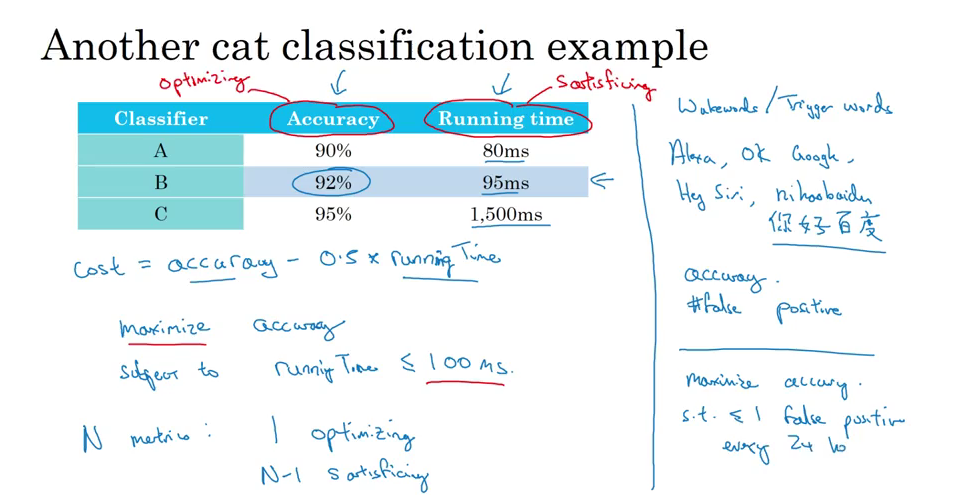 Another cat classification example
optimizing
satisficing
Classifier Accuracy Running time
A 90% 80ms
B 92% 95ms
C 95% 1,500ms
cost = accuracy - 0.5 x running Time
maximize accuracy
subject to running Time ≤ 100 ms.
N metrics: 1 optimizing
N-1 satisficing
Wakewords / Trigger words
Alexa, OK Google,
Hey Siri, nihaobaidu
你好百度
accuracy.
#false positive
maximize accuracy.
s.t. ≤ 1 false positive
every 24